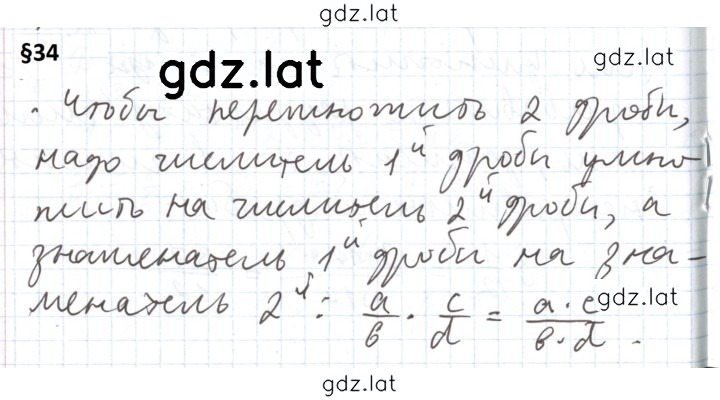 gdz.lat
§34
gdz.lat
gdz.lat
. Чтобы перемножить 2 дроби,
надо числитель 1й дроби умно-
жить на числитель 2й дроби, а
знаменатель 1й дроби на зна-
менатель 2й: a/b · c/d = a·c/b·d .
gdz.lat
gdz.lat